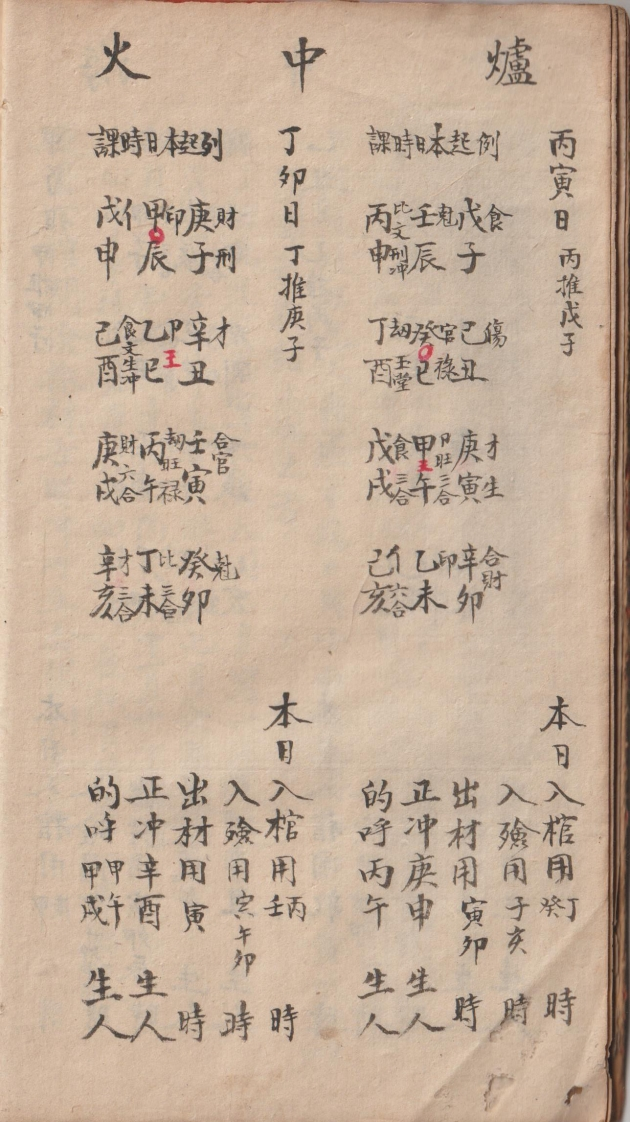 爐中火
丙寅日 丙推戊子
例起本日時課
戊子 食
己丑 傷
庚寅 才生
辛卯 合財
壬辰 鬼
癸巳 官禄
甲午 卩旺三合 王
乙未 印
丙申 比文刑冲
丁酉 劫玉堂
戊戌 食三合
己亥 亻六合
本日入棺用丁癸時
入殮用子亥時
出材用寅卯時
正冲庚申生人
的呼丙午生人
丁卯日 丁推庚子
列起本日時課
庚子 財刑
辛丑 才
壬寅 合官
癸卯 鬼
甲辰 印
乙巳 卩 王
丙午 劫旺禄
丁未 比三合
戊申 亻
己酉 食文生冲
庚戌 財六合
辛亥 才三合
本日入棺用丙壬時
入殮用寅午卯時
出材用寅時
正冲辛酉生人
的呼甲午甲戌生人